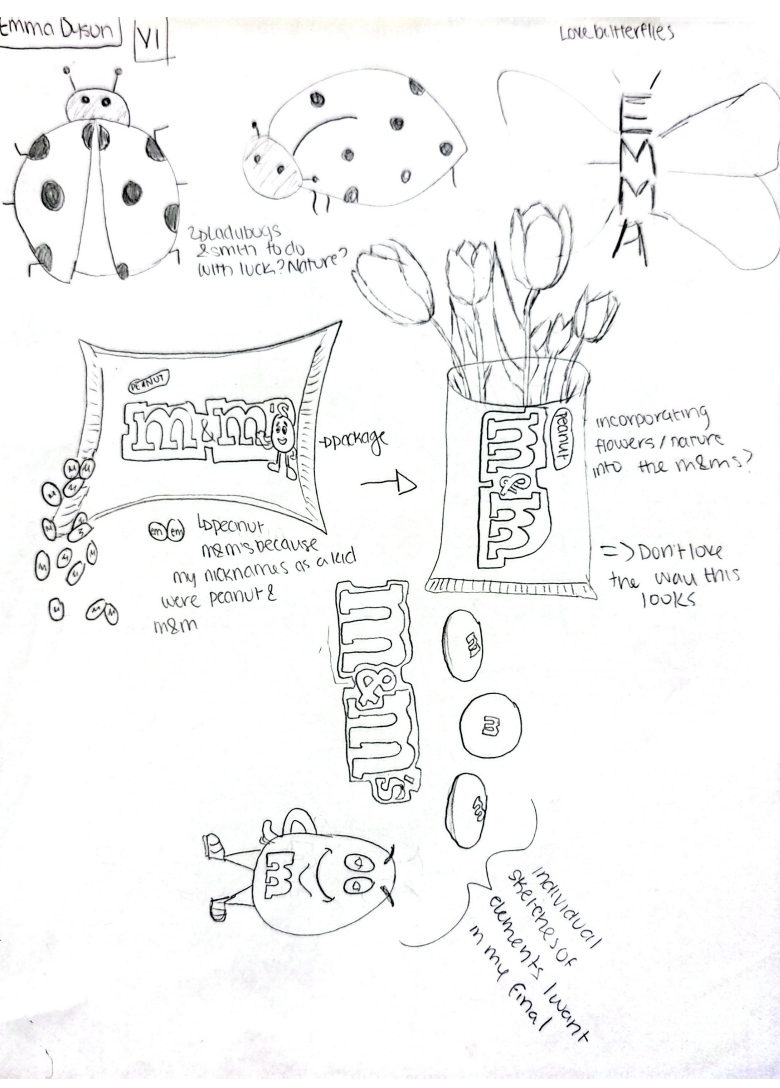 Emma Dyson
V1
Love butterflies
EMMA
ladybugs
& smth to do
with luck? Nature?
PEANUT
m&m's
package
M M
M
M
em em
peanut
m&m's because
my nicknames as a kid
were peanut &
m&m
Peanut
m&m
incorporating
flowers/nature
into the m&ms?
=> Don't love
the way this
looks
m&m's
m
m
m
m
individual
sketches of
elements I want
in my final